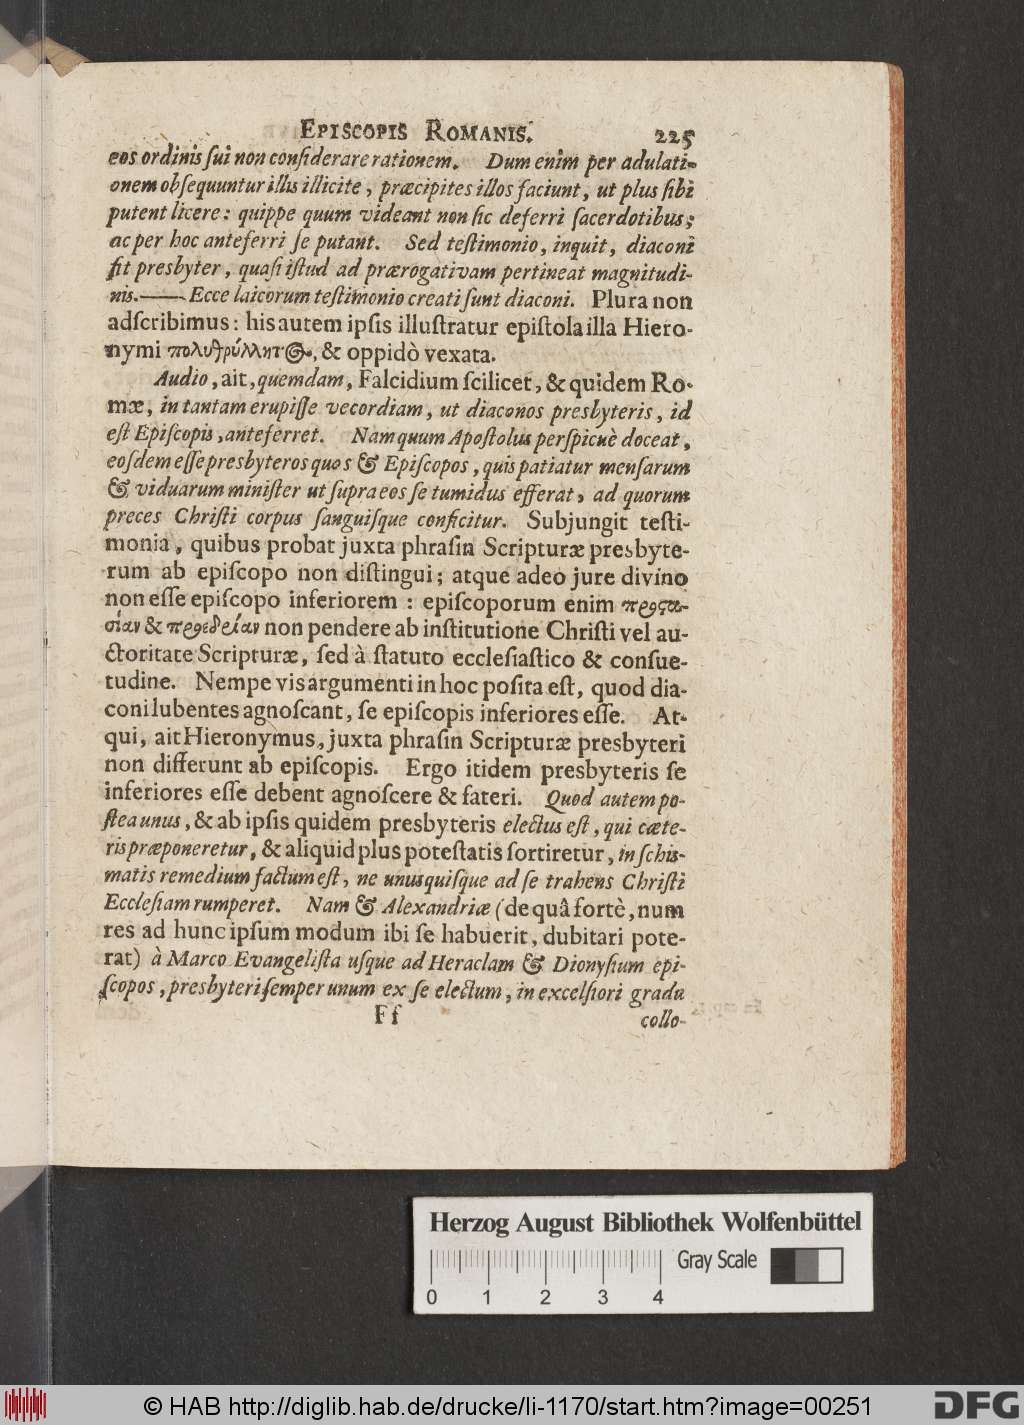 EPISCOPIS ROMANIS. 225
eos ordinis ſui non conſiderare rationem. Dum enim per adulati-
onem obſequuntur illis illicite, præcipites illos faciunt, ut plus ſibi
putent licere: quippe quum videant non ſic deferri ſacerdotibus;
ac per hoc anteferri ſe putant. Sed teſtimonio, inquit, diaconi
fit presbyter, quaſi iſtud ad prærogativam pertineat magnitudi-
nis.—— Ecce laicorum teſtimonio creati ſunt diaconi. Plura non
adſcribimus: his autem ipſis illuſtratur epiſtola illa Hiero-
nymi πολυθρύλλητ@, & oppidò vexata.
Audio, ait, quemdam, Falcidium ſcilicet, & quidem Ro-
mæ, in tantam erupiſſe vecordiam, ut diaconos presbyteris, id
eſt Epiſcopis, anteferret. Nam quum Apoſtolus perſpicuè doceat,
eoſdem eſſe presbyteros quos & Epiſcopos, quis patiatur menſarum
& viduarum miniſter ut ſupra eos ſe tumidus efferat, ad quorum
preces Chriſti corpus ſanguiſque conficitur. Subjungit teſti-
monia, quibus probat juxta phraſin Scripturæ presbyte-
rum ab epiſcopo non diſtingui; atque adeo jure divino
non eſſe epiſcopo inferiorem: epiſcoporum enim προςα-
σίαν & προεδρείαν non pendere ab inſtitutione Chriſti vel au-
ctoritate Scripturæ, ſed à ſtatuto eccleſiaſtico & conſue-
tudine. Nempe vis argumenti in hoc poſita eſt, quod dia-
coni lubentes agnoſcant, ſe epiſcopis inferiores eſſe. At-
qui, ait Hieronymus, juxta phraſin Scripturæ presbyteri
non differunt ab epiſcopis. Ergo itidem presbyteris ſe
inferiores eſſe debent agnoſcere & fateri. Quod autem po-
ſtea unus, & ab ipſis quidem presbyteris electus eſt, qui cæte-
ris præponeretur, & aliquid plus poteſtatis ſortiretur, in ſchis-
matis remedium factum eſt, ne unusquiſque ad ſe trahens Chriſti
Eccleſiam rumperet. Nam & Alexandriæ (de quâ fortè, num
res ad hunc ipſum modum ibi ſe habuerit, dubitari pote-
rat) à Marco Evangeliſta uſque ad Heraclam & Dionyſium epi-
ſcopos, presbyteri ſemper unum ex ſe electum, in excelſiori gradu
Ff collo-
Herzog August Bibliothek Wolfenbüttel
Gray Scale
0 1 2 3 4
© HAB http://diglib.hab.de/drucke/li-1170/start.htm?image=00251
DFG